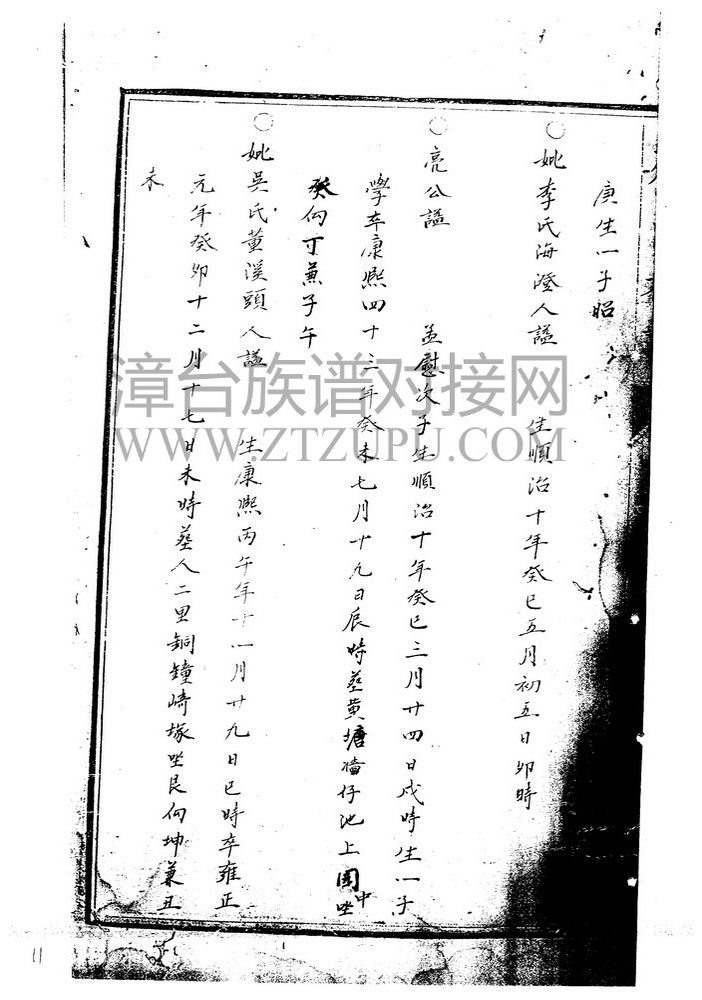 庚生一子昭
○妣李氏海澄人諡 生順治十年癸巳五月初五日卯時
○亮公諡 孟慰次子生順治十年癸巳三月廿四日戌時生一子
學卒康熙四十三年癸未七月十九日辰時塟黃塘墻仔池上園中坐
癸向丁兼子午
○妣吳氏董溪頭人諡 生康熙丙午年十一月廿九日巳時卒雍正
元年癸卯十二月十七日未時塟人二里銅鐘崎塚坐艮向坤兼丑
未
漳台族谱对接网
WWW.ZTZUPU.COM
11